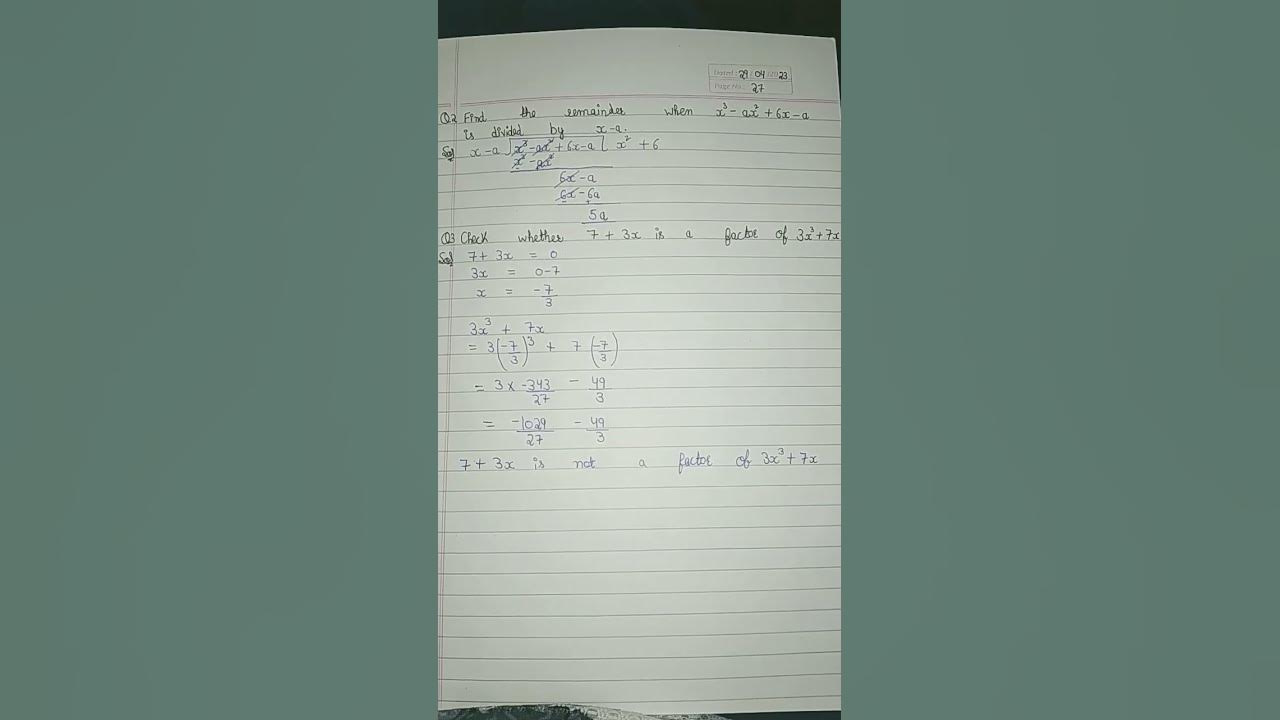 Dated: 29 04 2023
Page No: 27
Q2 Find the remainder when x³ - ax² + 6x - a
is divided by x-a.
Sol x - a ) x³ - ax² + 6x - a ( x² + 6
x³ - ax²
6x - a
6x - 6a
- +
5a
Q3 Check whether 7 + 3x is a factor of 3x³ + 7x
Sol 7 + 3x = 0
3x = 0-7
x = -7/3
3x³ + 7x
= 3(-7/3)³ + 7(-7/3)
= 3 × -343/27 - 49/3
= -1029/27 - 49/3
7 + 3x is not a factor of 3x³ + 7x